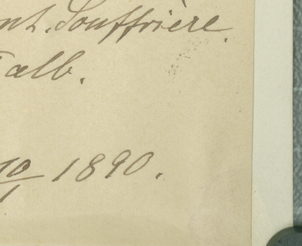 nt. Souffrière.
alb.
10/1 1890.